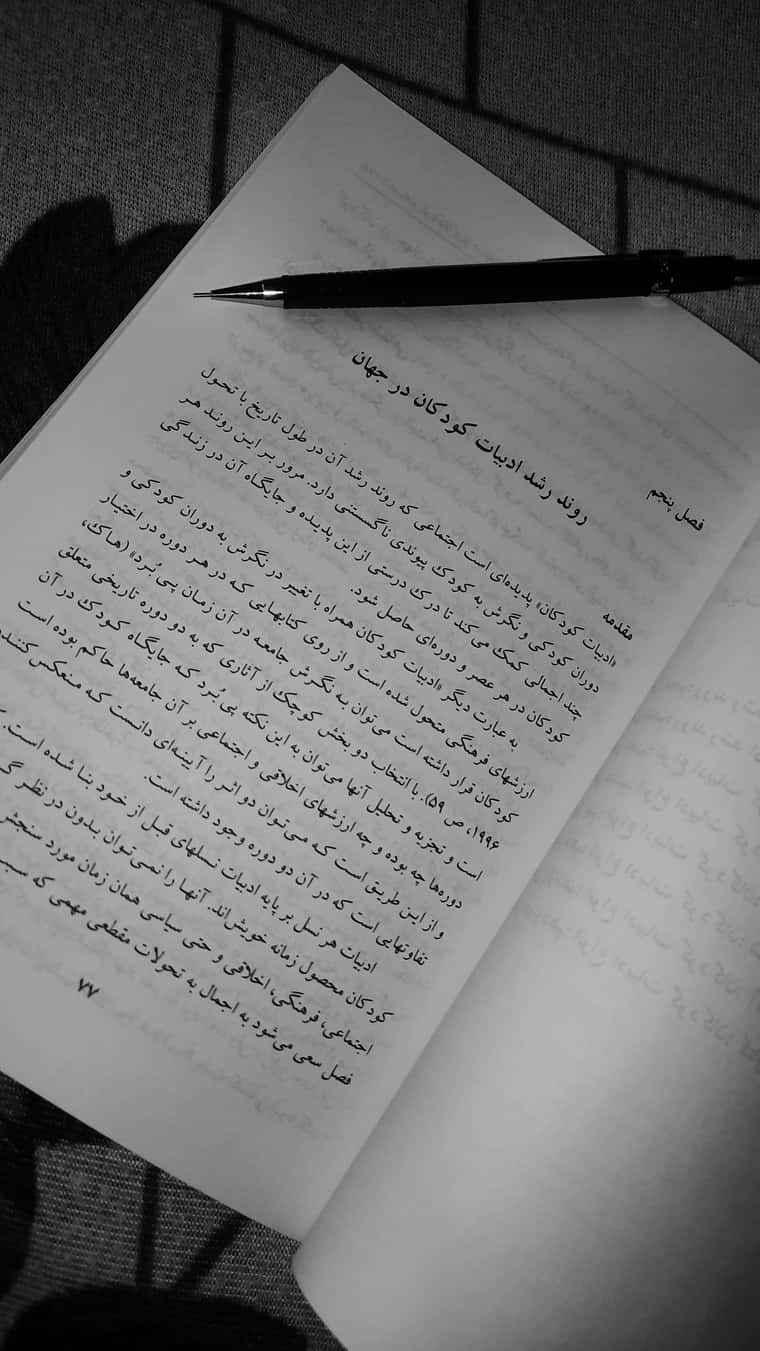 فصل پنجم
روند رشد ادبیات کودکان در جهان
مقدمه
«ادبیات کودکان» پدیده‌ای است اجتماعی که روند رشد آن در طول تاریخ با تحول
دوران کودکی و نگرش به کودک پیوندی ناگسستنی دارد. مرور بر این روند هر
چند اجمالی کمک می‌کند تا درک درستی از این پدیده و جایگاه آن در زندگی
کودکان در هر عصر و دوره‌ای حاصل شود.
به عبارت دیگر «ادبیات کودکان همراه با تغییر در نگرش به دوران کودکی و
ارزشهای فرهنگی متحول شده است و از روی کتابهایی که در هر دوره در اختیار
کودکان قرار داشته است می‌توان به نگرش جامعه در آن زمان پی بُرد» (هاک،
۱۹۹۶، ص ۵۹). با انتخاب دو بخش کوچک از آثاری که به دو دوره تاریخی متعلق
است و تجزیه و تحلیل آنها می‌توان به این نکته پی بُرد که جایگاه کودک در آن
دوره‌ها چه بوده و چه ارزشهای اخلاقی و اجتماعی بر آن جامعه‌ها حاکم بوده است
و از این طریق است که می‌توان دو اثر را آیینه‌ای دانست که منعکس کننده
تفاوتهایی است که در آن دو دوره وجود داشته است.
ادبیات هر نسل بر پایه ادبیات نسلهای قبل از خود بنا شده است.
کودکان محصول زمانه خویش‌اند. آنها را نمی‌توان بدون در نظر
اجتماعی، فرهنگی، اخلاقی و حتی سیاسی همان زمان مورد سنجش
فصل سعی می‌شود به اجمال به تحولات مقطعی مهمی که
۷۷